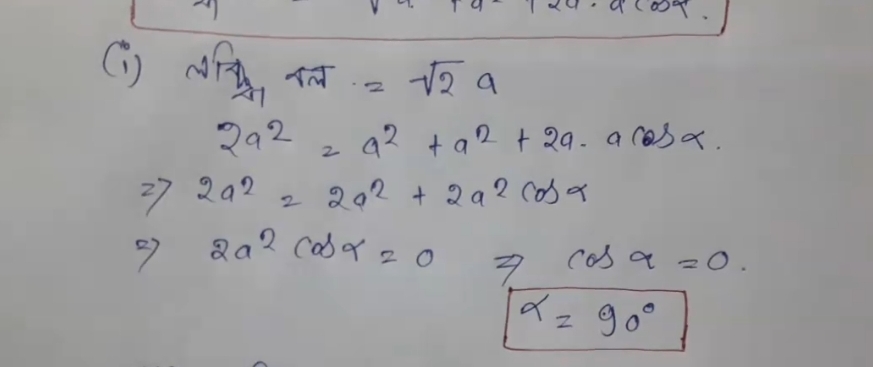 (i) লব্ধি বল = √2 a
2a² = a² + a² + 2a. a cosα.
=> 2a² = 2a² + 2a² cosα
=> 2a² cosα = 0 => cosα = 0.
α = 90°